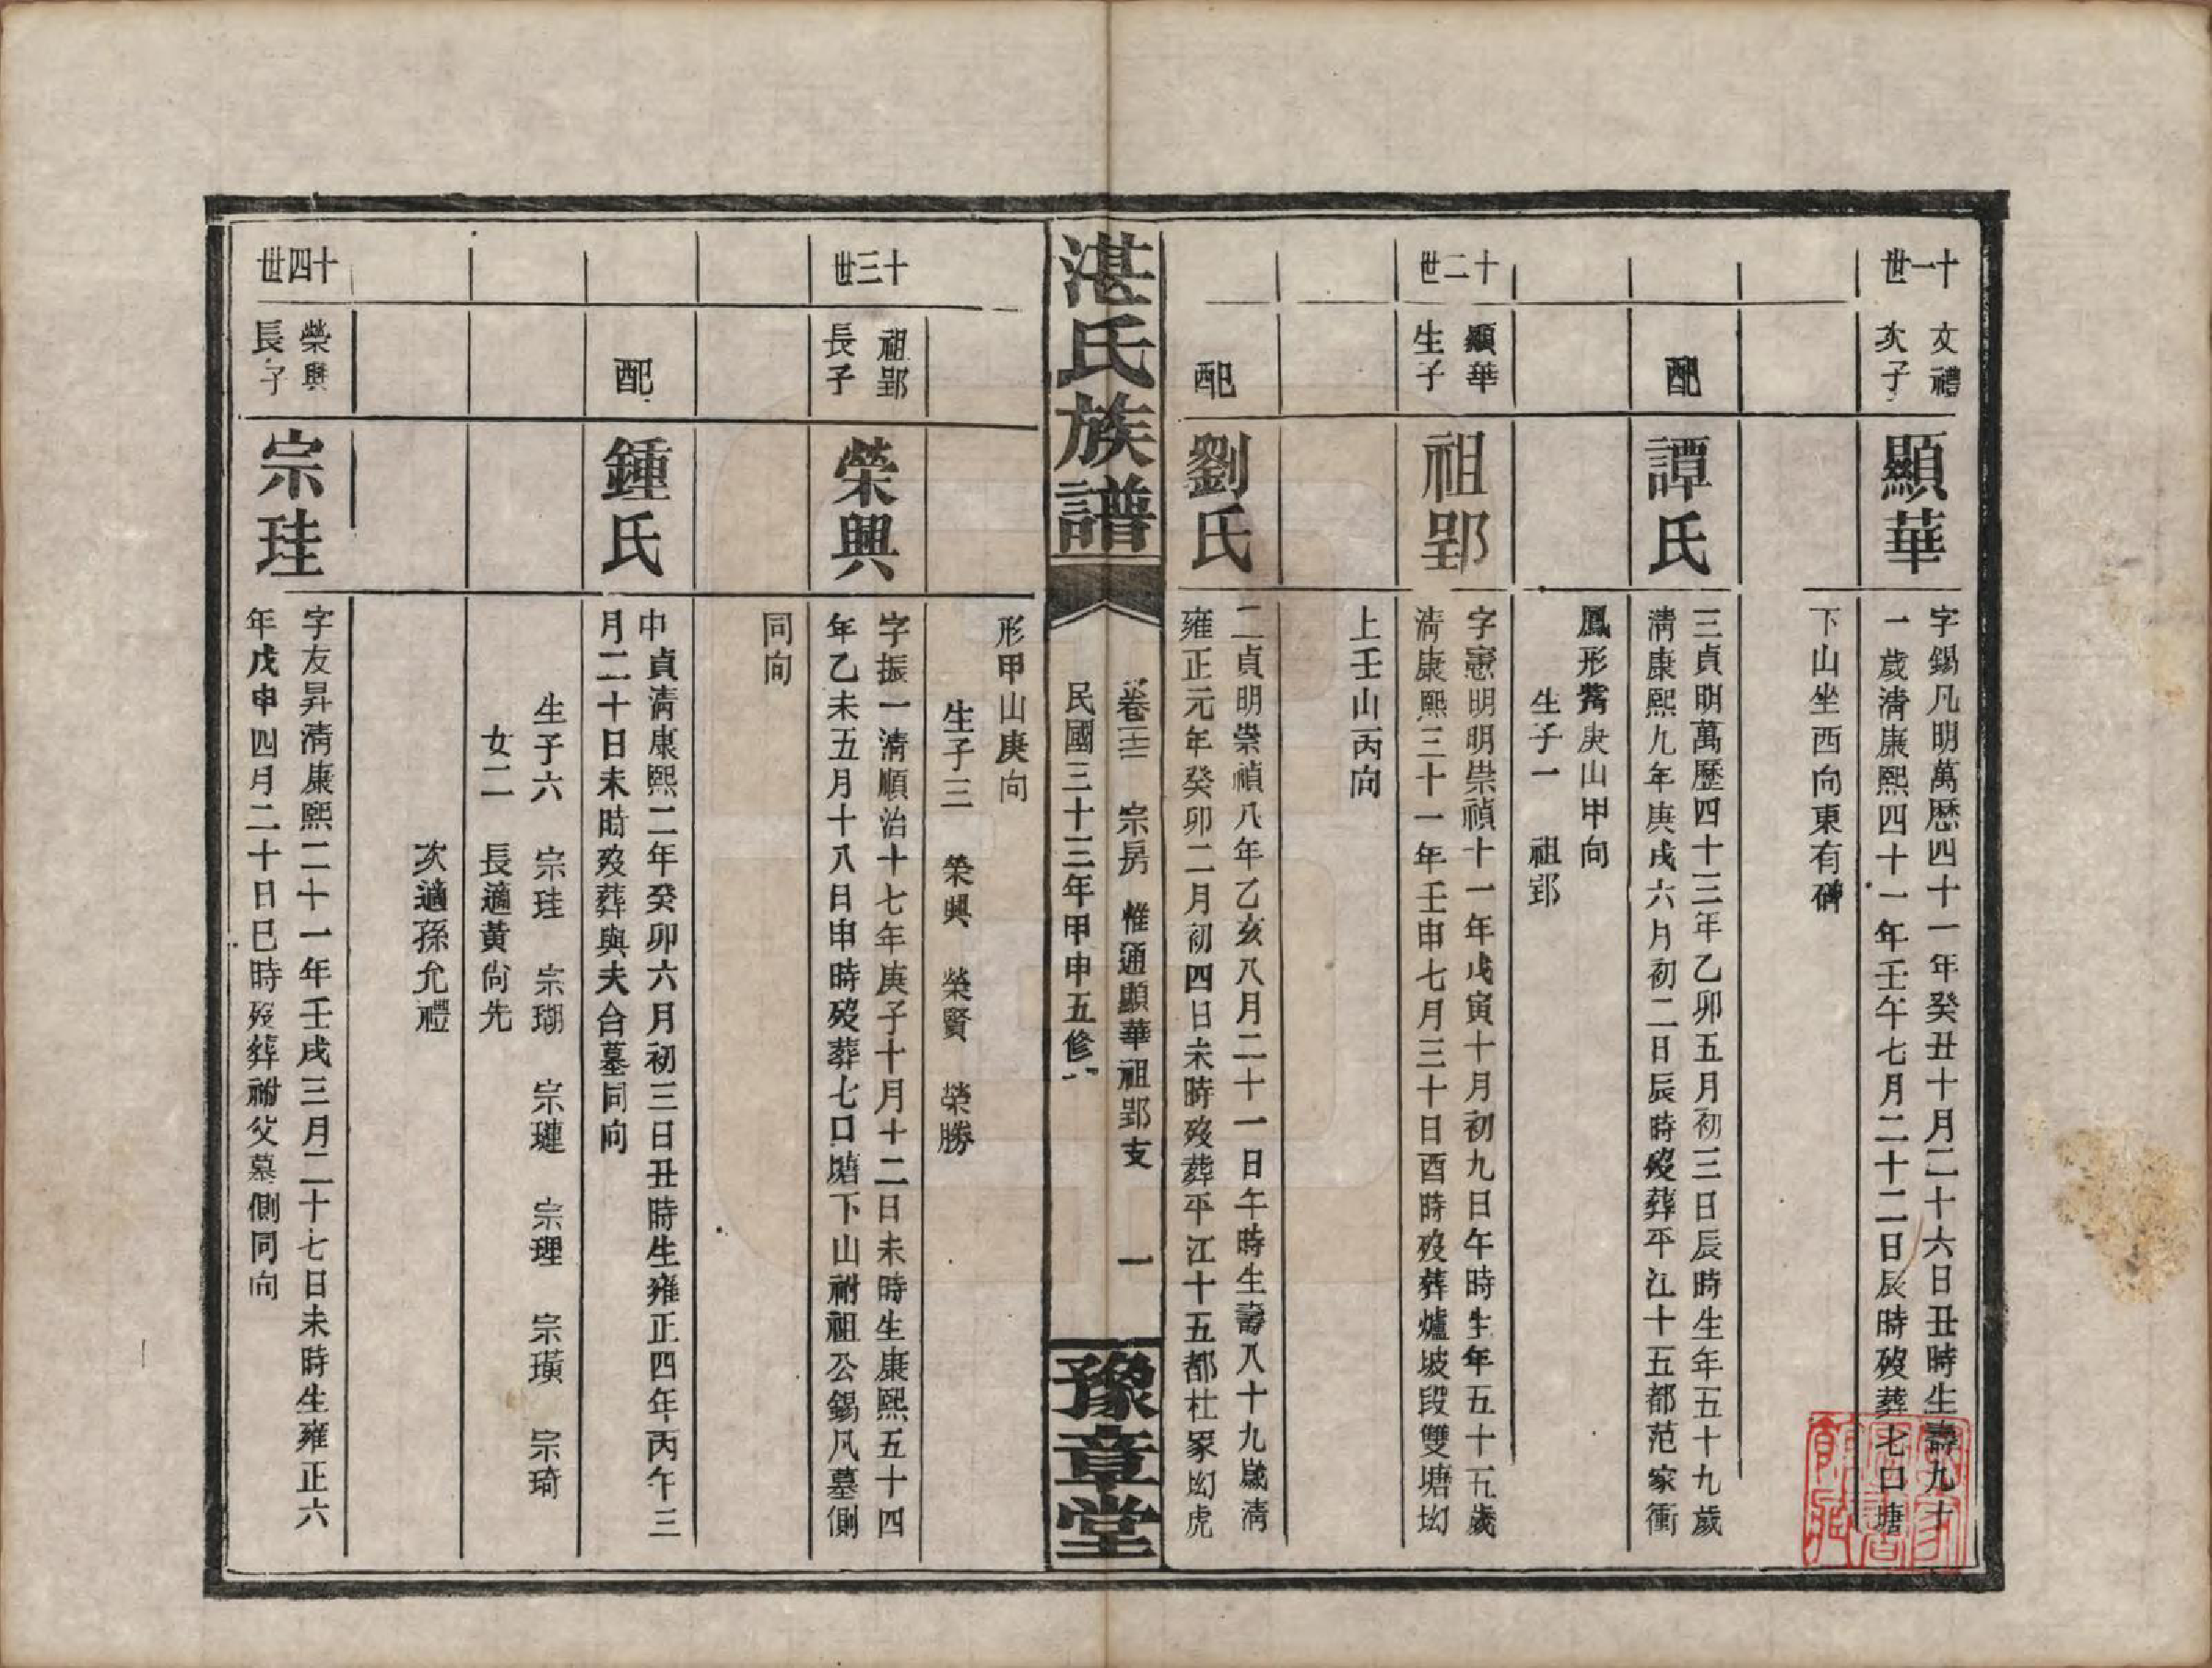 十一世
文禮
次子
顯華
字錫凡明萬歷四十一年癸丑十月二十六日丑時生壽九十
一歲淸康熙四十一年壬午七月二十二日辰時歿葬七口塘
下山坐西向東有碑
配
譚氏
三貞明萬歷四十三年乙卯五月初三日辰時生年五十九歲
淸康熙九年庚戌六月初二日辰時歿葬平江十五都范家衝
鳳形觜庚山甲向
生子一 祖郢
十二世
顯華
生子
祖郢
字憲明明崇禎十一年戊寅十月初九日午時生年五十五歲
淸康熙三十一年壬申七月三十日酉時歿葬爐坡段雙塘㘭
上壬山丙向
配
劉氏
二貞明崇禎八年乙亥八月二十一日午時生壽八十九歲淸
雍正元年癸卯二月初四日未時歿葬平江十五都杜家㘭虎
湛氏族譜
卷 宗房 惟通顯華祖郢支 一
民國三十三年甲申五修
豫章堂
形甲山庚向
生子三 榮興 榮賢 榮勝
十三世
祖郢
長子
榮興
字振一淸順治十七年庚子十月十二日未時生康熙五十四
年乙未五月十八日申時歿葬七口塘下山祔祖公錫凡墓側
同向
配
鍾氏
中貞淸康熙二年癸卯六月初三日丑時生雍正四年丙午三
月二十日未時歿葬與夫合墓同向
生子六 宗珪 宗瑚 宗璉 宗理 宗璜 宗琦
女二 長適黃尙先
次適孫允禮
十四世
榮興
長子
宗珪
字友昇淸康熙二十一年壬戌三月二十七日未時生雍正六
年戊申四月二十日巳時歿葬祔父墓側同向